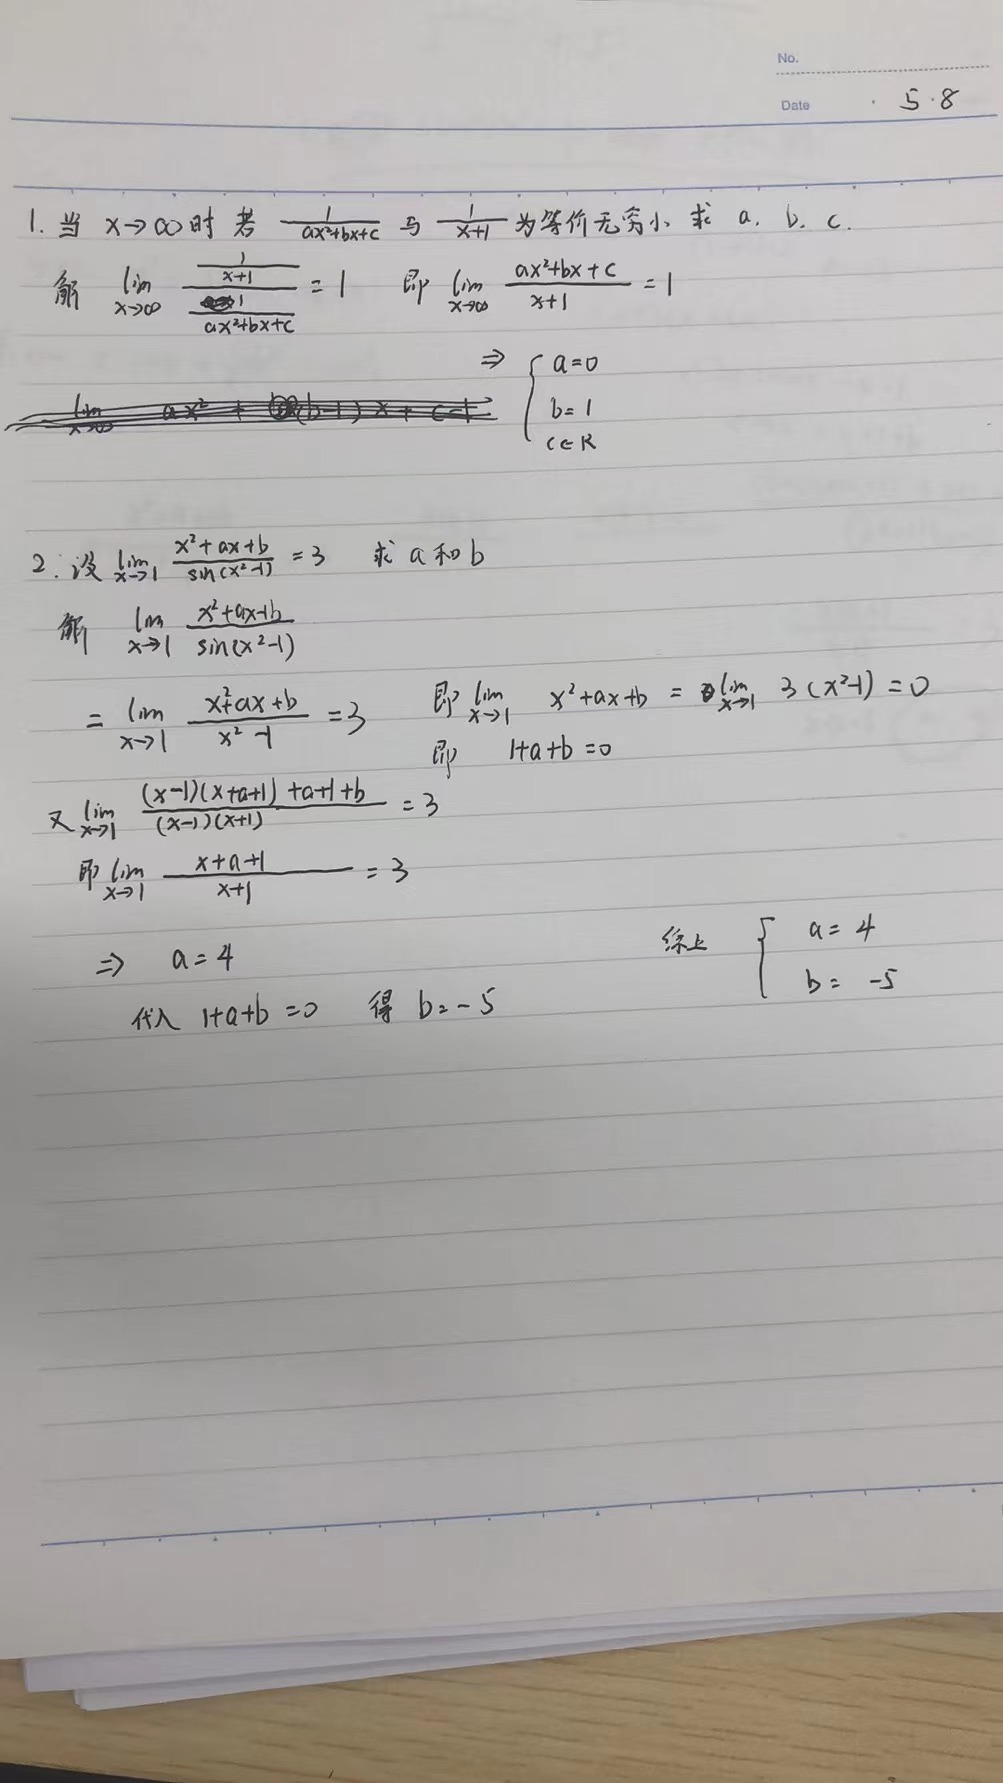 No.
Date 5.8
1. 当 x→∞ 时 若 1/(ax²+bx+c) 与 1/(x+1) 为等价无穷小 求 a. b. c.
解 lim x→∞ (1/(x+1))/(1/(ax²+bx+c)) = 1 即 lim x→∞ (ax²+bx+c)/(x+1) = 1
⇒ { a=0
b=1
c∈R
2. 设 lim x→1 (x²+ax+b)/sin(x²-1) = 3 求 a 和 b
解 lim x→1 (x²+ax+b)/sin(x²-1)
= lim x→1 (x²+ax+b)/(x²-1) = 3 即 lim x→1 x²+ax+b = lim x→1 3(x²-1) = 0
即 1+a+b=0
又 lim x→1 ((x-1)(x+a+1)+a+1+b)/((x-1)(x+1)) = 3
即 lim x→1 (x+a+1)/(x+1) = 3
⇒ a=4 综上 { a=4
b=-5
代入 1+a+b=0 得 b=-5